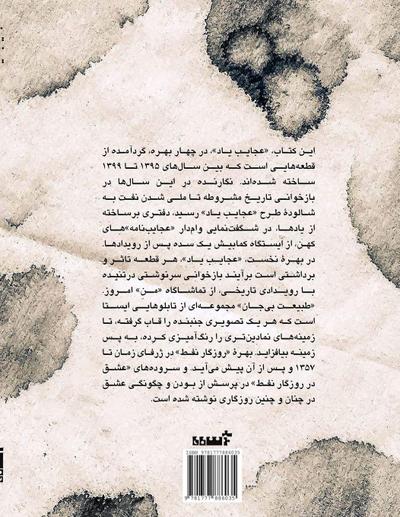 این کتاب، «عجایب یاد»، در چهار بهره، گردآمده از
قطعه‌هایی است که بین سال‌های ۱۳۹۵ تا ۱۳۹۹
ساخته شده‌اند. نگارنده در این سال‌ها در
بازخوانی تاریخ مشروطه تا ملی شدن نفت به
شالودهٔ طرح «عجایب یاد» رسید، دفتری برساخته
از یادها، در شگفت‌نمایی وام‌دار «عجایب‌نامه»های
کهن، از ایستگاه کمابیش یک سده پس از رویدادها.
در بهرهٔ نخست، «عجایب یاد»، هر قطعه تاثر و
برداشتی است برآیند بازخوانی سرنوشتی درتنیده
با رویدادی تاریخی، از تماشاگاه «من» امروز.
«طبیعت بی‌جان» مجموعه‌ای از تابلوهایی ایستا
است که هر یک تصویری جنبنده را قاب گرفته، تا
زمینه‌های نمادین‌تری را رنگ‌آمیزی کرده، به پس
زمینه بیافزاید. بهرهٔ «روزگار نفط» در ژرفای زمان تا
۱۳۵۷ و پس از آن پیش می‌آید. و سروده‌های «عشق
در روزگار نفط» در پرسش از بودن و چگونگی عشق
در چنان و چنین روزگاری نوشته شده است.
ISBN 9781777886035
9 781777 886035